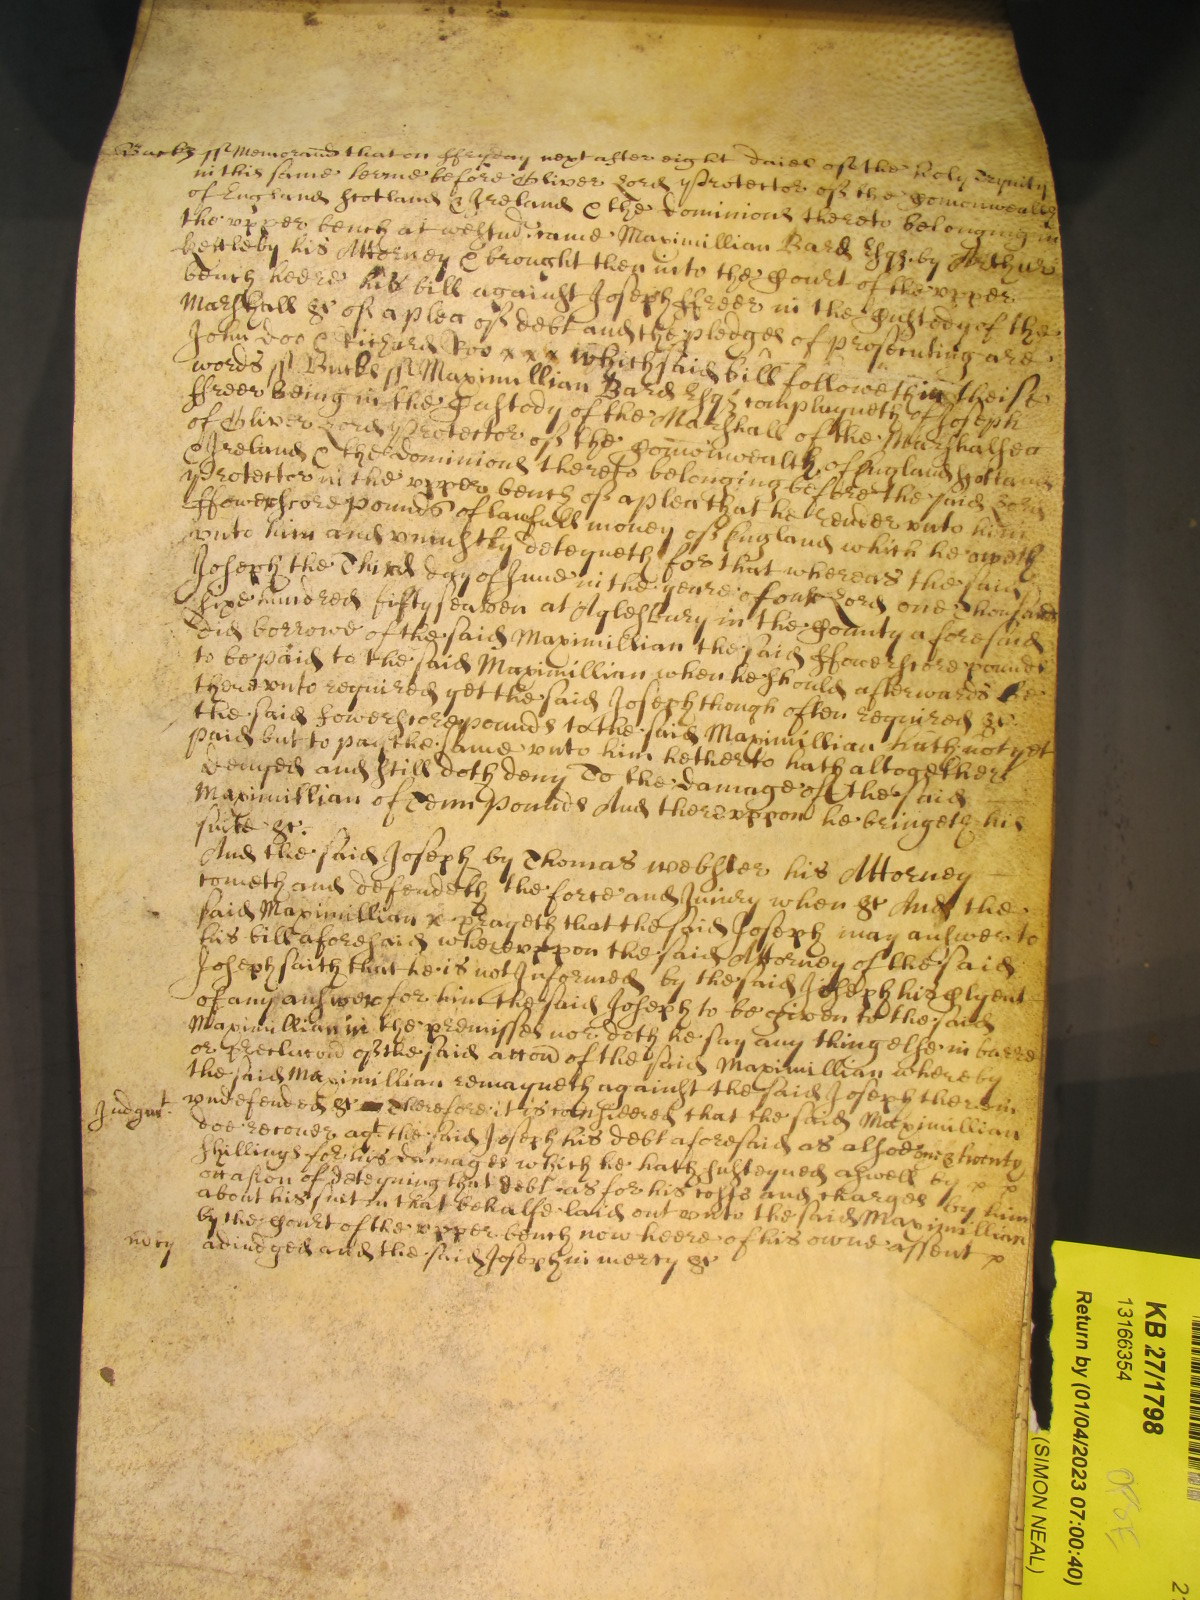 Bucks ss Memorand that on ffryday next after eight daies of the holy Trynity
in this same terme before Oliver Lord Protector of the Comonwealth
of England Scotland & Ireland & the dominions thereto belonging in
the upper bench at Westm came Maximillian Bard Esqr by Arthur
Kettleby his Attorney & brought then into the Court of the upper
bench heere his bill against Joseph ffreer in the Custody of the
Marshall &c of a plea of debt and the pledges of prosecuting are
John Doo & Richard Roo x x x which said bill followeth in theise
words ss Bucks ss Maximillian Bard Esqr complayneth of Joseph
ffreer being in the Custody of the Marshall of the Marshalsea
of Oliver Lord Protector of the Comonwealth of England Scotland
& Ireland & the dominions thereto belonging before the said Lord
Protector in the upper bench of a plea that he render unto him
ffowerscore pounds of lawfull money of England which he oweth
unto him and uniustly deteyneth for that whereas the said
Joseph the Third day of June in the yeare of our Lord one Thousand
sixe hundred fifty seaven at Aylesbury in the County aforesaid
did borrowe of the said Maximillian the said ffowerscore pounds
to be paid to the said Maximillian when he should afterwards be
thereunto required yet the said Joseph though often required &c
the said fowerscore pounds to the said Maximillian hath not yet
paid but to pay the same unto him hetherto hath altogether
denyed and still doth deny To the damage of the said
Maximillian of Tenn pounds And thereuppon he bringeth his
suite &c.
And the said Joseph by Thomas Webster his Attorney
cometh and defendeth the force and Iniury when &c And the
said Maximillian x prayeth that the said Joseph may answer to
his bill aforesaid whereuppon the said Attorney of the said
Joseph saith that he is not Informed by the said Joseph his Clyent
of any answer for him the said Joseph to be given to the said
Maximillian in the premisses nor doth he say any thing else in barre
or preclucon of the said accon of the said Maximillian whereby
the said Maximillian remayneth against the said Joseph therein
undefended &c Therefore it is considered that the said Maximillian
Judgmt.
doe recover agt the said Joseph his debt aforesaid as also twenty
shillings for his damages which he hath susteyned aswell by x x
occasion of deteyning that debt as for his costs and charges by him
about his suit in that behalfe laid out unto the said Maximillian
by the Court of the upper bench now heere of his owne assent x
mcy adiudged and the said Joseph in mercy &c
KB 27/1798
13166354
Return by (01/04/2023 07:00:40)
(SIMON NEAL)